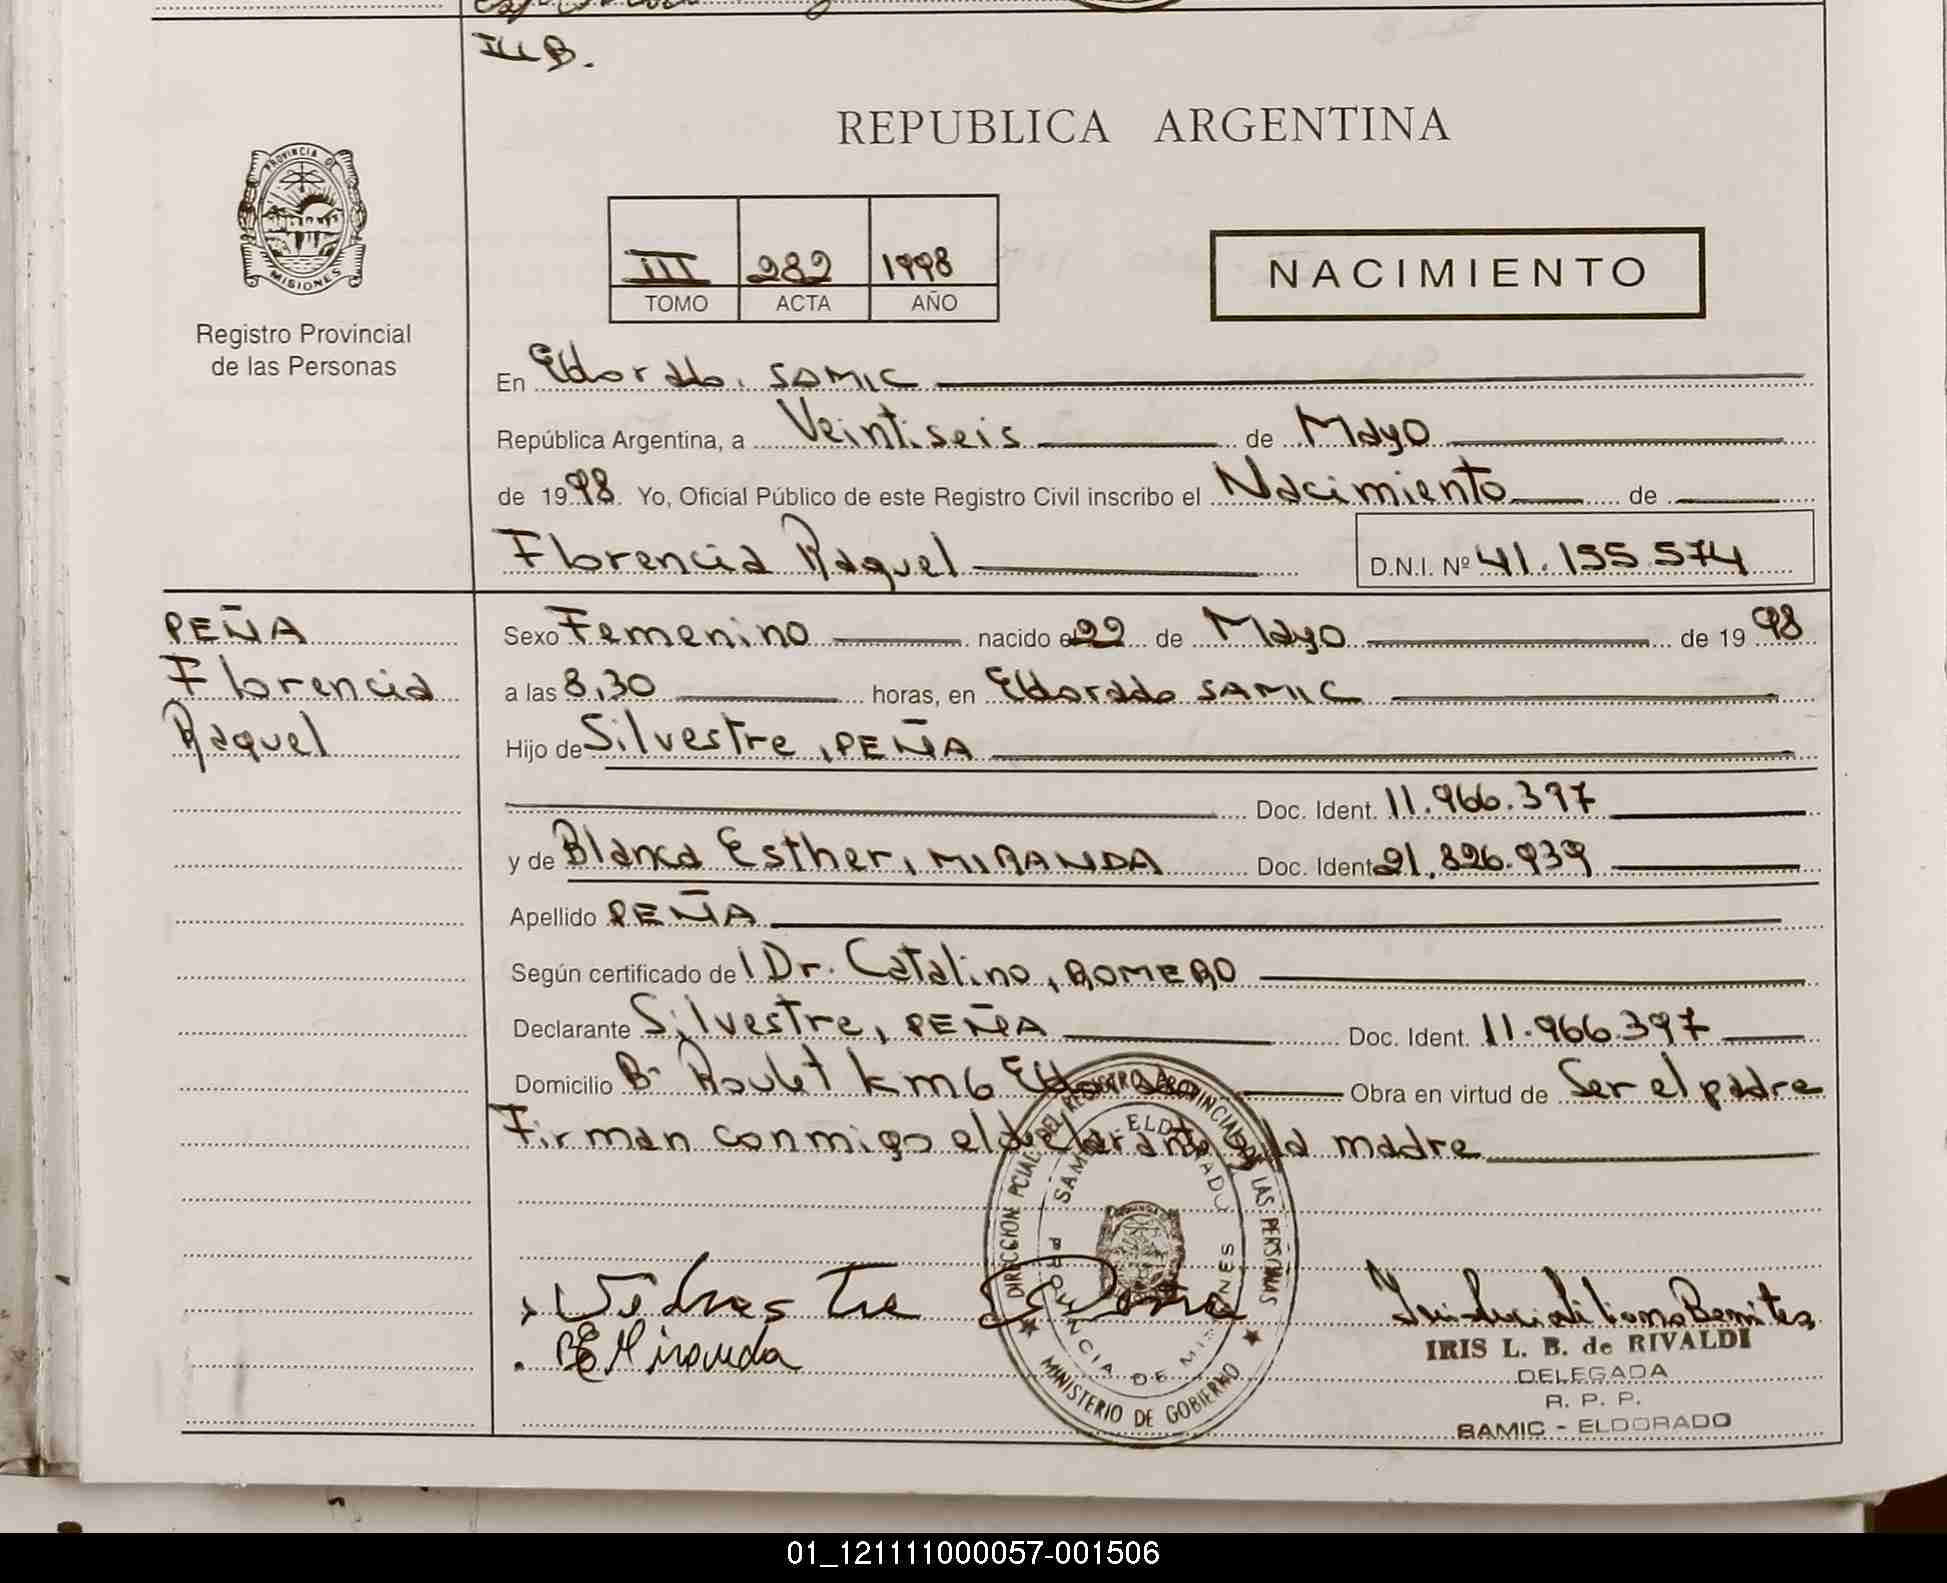 III B.
REPUBLICA ARGENTINA
PROVINCIA DE
MISIONES
Registro Provincial
de las Personas
III 282 1998
TOMO ACTA AÑO
NACIMIENTO
En Eldorado. SAMIC
República Argentina, a Veintiseis de Mayo
de 1998. Yo, Oficial Público de este Registro Civil inscribo el Nacimiento de
Florencia Raquel D.N.I. Nº 41.155.574
PEÑA
Florencia
Raquel
Sexo Femenino nacido el 22 de Mayo de 1998
a las 8,30 horas, en Eldorado SAMIC
Hijo de Silvestre, PEÑA
Doc. Ident. 11.966.397
y de Blanca Esther, MIRANDA Doc. Ident 21.826.939
Apellido PEÑA
Según certificado de l Dr. Catalino, ROMERO
Declarante Silvestre, PEÑA Doc. Ident. 11.966.397
Domicilio Bº Roulet km 6 Eldorado Obra en virtud de Ser el padre
Firman conmigo el declarante y la madre
DIRECCION PCIAL. DEL REGISTRO PROVINCIAL DE LAS PERSONAS
SAMIC - ELDORADO
PROVINCIA DE MISIONES
MINISTERIO DE GOBIERNO
Silvestre Peña
BE Miranda
IRIS L. B. de RIVALDI
DELEGADA
R. P. P.
SAMIC - ELDORADO
01_121111000057-001506